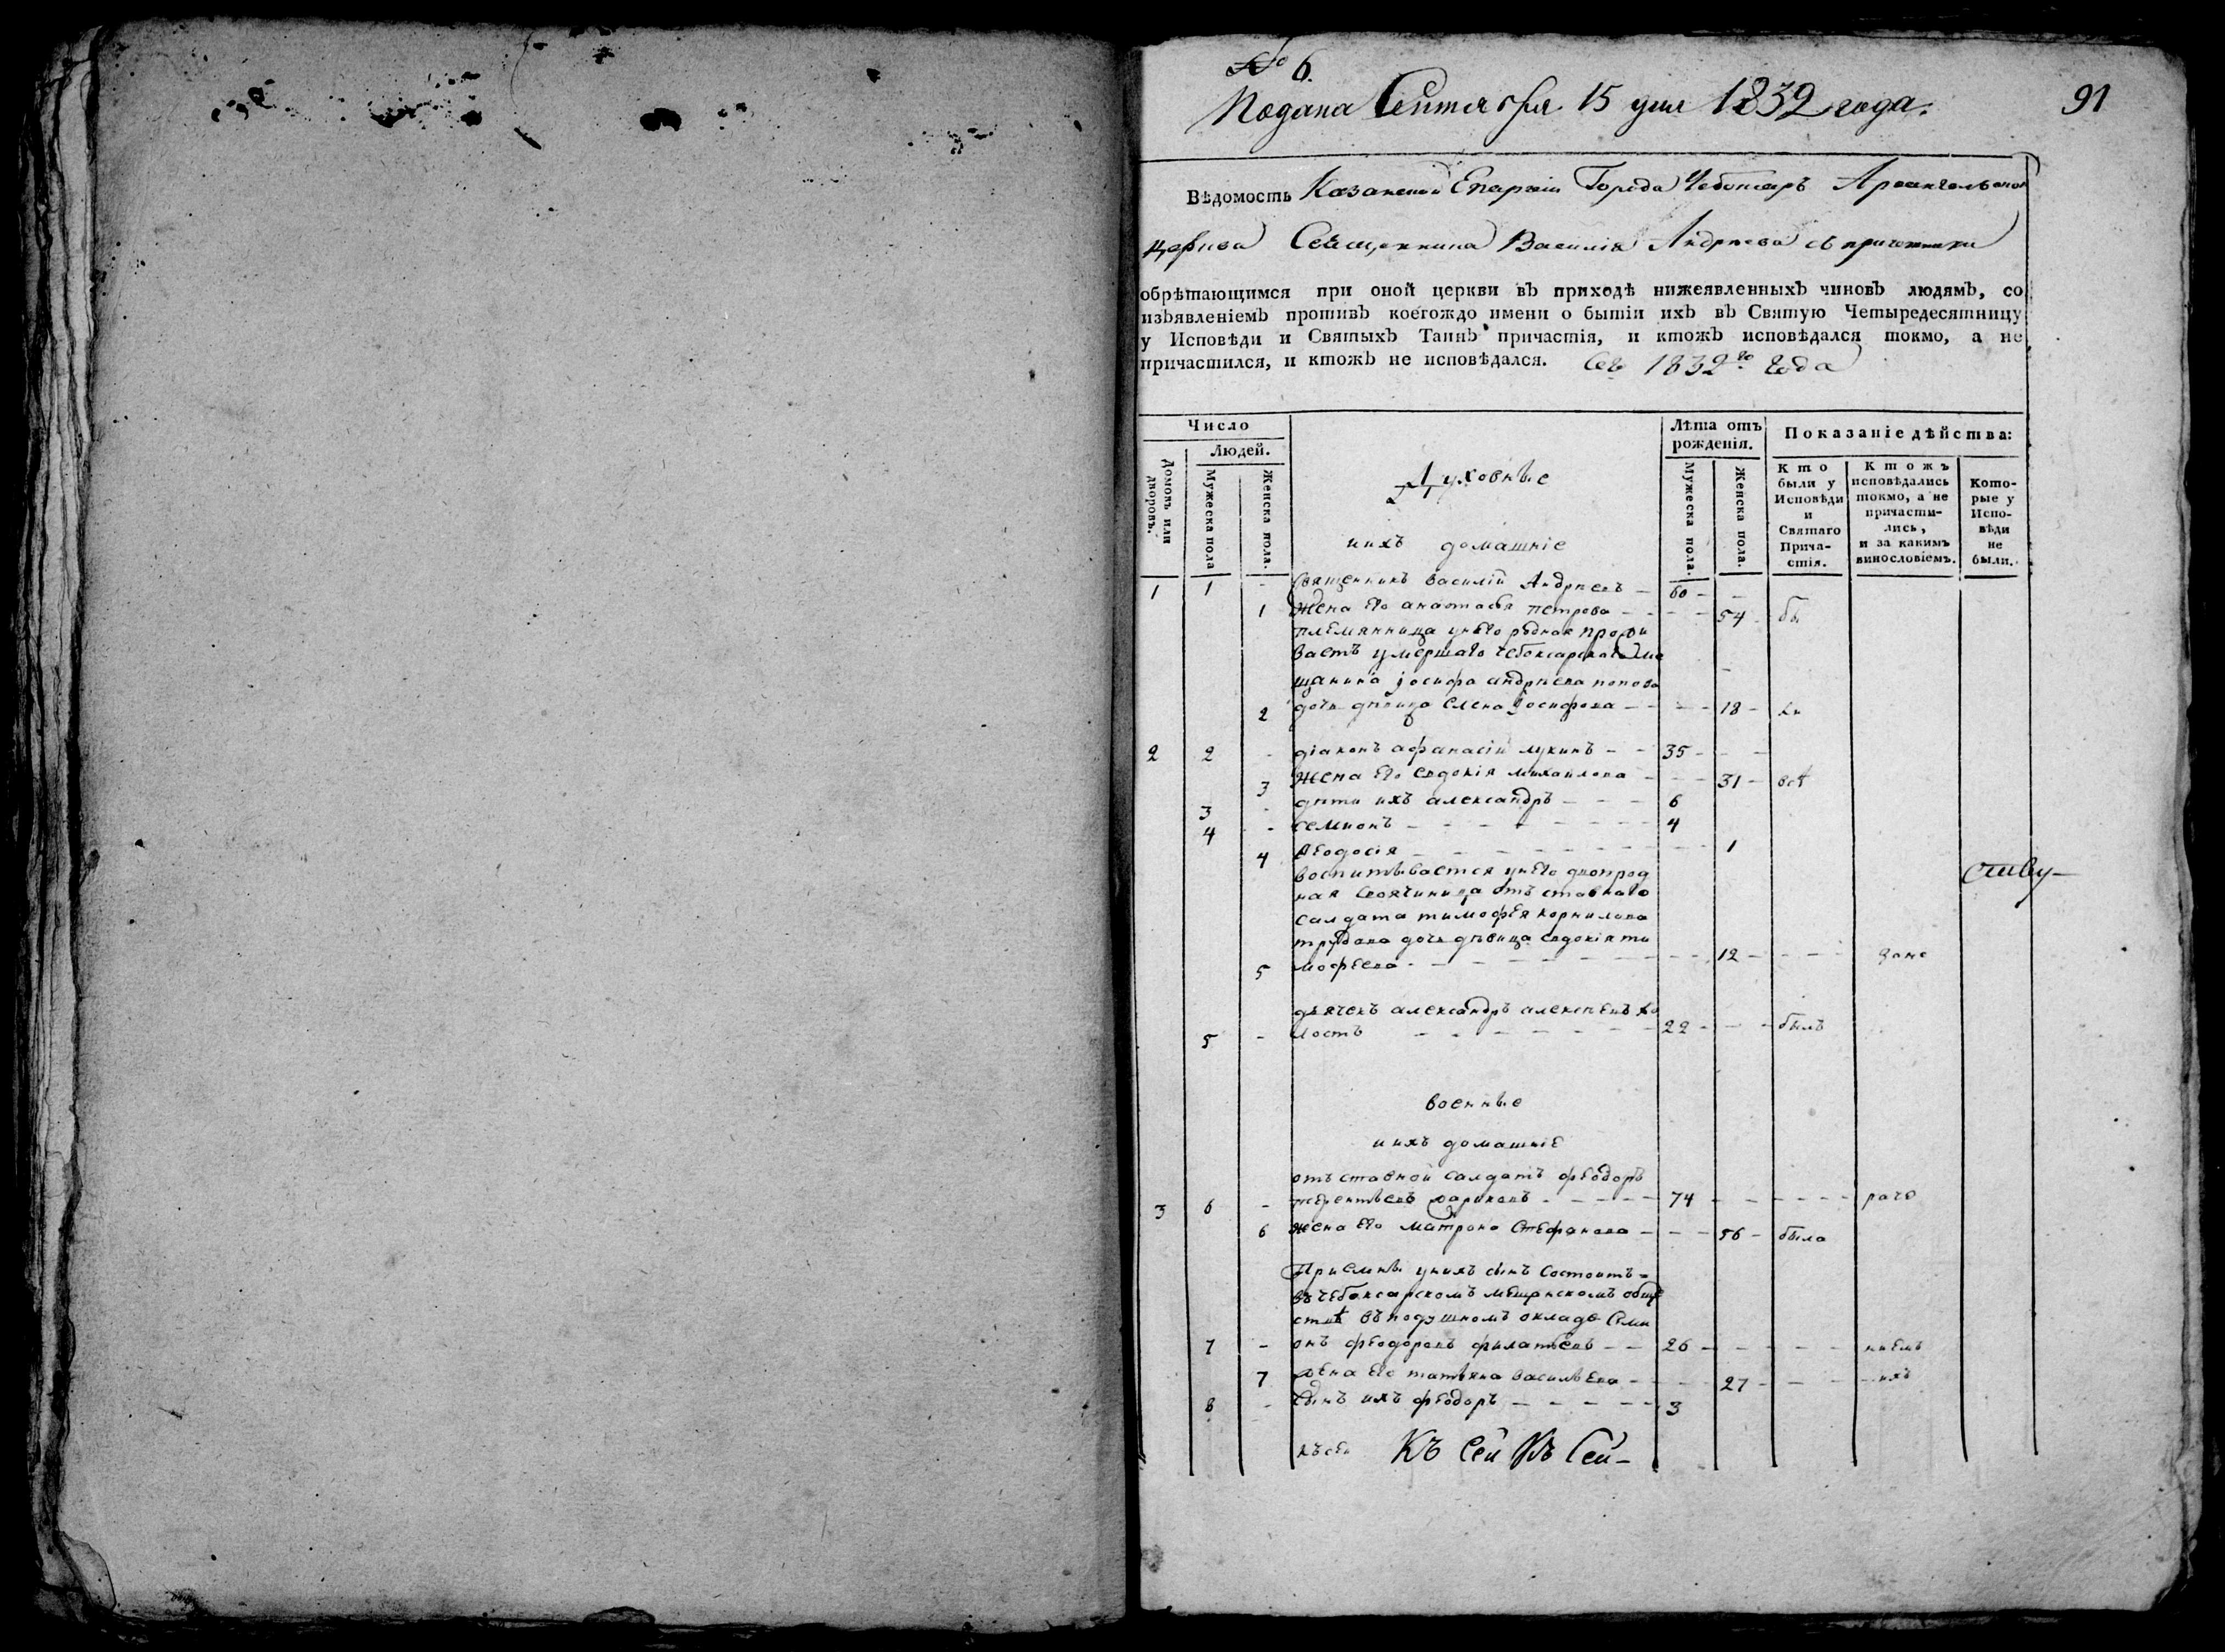 № 6.
Подана Сентября 15 дня 1832 года.
91
Вѣдомость Казанской Епархіи Города Чебоксаръ Архангельской
церкви Священника Василія Андреева съ причетники
обрѣтающимся при оной церкви въ приходѣ нижеявленныхъ чиновъ людямъ, со
изъявленіемъ противъ коегождо имени о бытіи ихъ въ Святую Четыредесятницу
у Исповѣди и Святыхъ Таинъ причастія, и ктожъ исповѣдался токмо, а не
причастился, и ктожъ не исповѣдался. Сего 1832го года
Число
Людей.
Домовъ или дворовъ.
Мужеска пола
Женска пола.
Лѣта отъ рожденія.
Мужеска пола.
Женска пола.
Показаніе дѣйства:
Кто были у Исповѣди и Святаго Прича-стія.
Ктожъ исповѣдались токмо, а не причасти-лись, и за какимъ винословіемъ.
Кото-рые у Испо-вѣди не были.
Духовные
и ихъ домашніе
1 1 - священникъ василій Андреевъ - 60 - -
1 Жена его анастасія петрова - - - - 54 - бы
племянница у него родная прожи
ваетъ умершаго чебоксарскаго ме
щанина іосифа андреева попова -
2 дочь дѣвица Елена Іосифова - - - - 18 - ли
2 2 - діаконъ афанасій лукинъ - - 35 - - -
3 Жена его евдокія михайлова - - - 31 - всѣ
3 - дѣти ихъ александръ - - - 6
4 - семионъ - - - - - - - 4
4 Феодосія - - - - - - - - 1
воспитывается у него двоирод
ная своячиница отъ ставнаго
салдата тимофея корнилова
трубова дочь дѣвица евдокія ти
5 мофеева - - - - - - - - - 12 - - - -
дьячекъ александръ алексѣевъ хо
5 - лостъ - - - - - - 22 - - - былъ
военные
и ихъ домашніе
отъ ставной салдатъ феодоръ
3 6 - терентьевъ - - - - - 74 - - - - - -
6 жена его матрона Стефанова - - - 56 - была
Приемны у нихъ сынъ состоитъ -
въ чебоксарскомъ мещанскомъ обще
ствѣ въ подушномъ окладе Семи
7 - онъ феодоровъ филатьевъ - - 26 - - - - -
7 жена его татьяна васильева - - - 27 - - - ихъ
8 - сынъ ихъ феодоръ - - - - - 3
къ сей Къ Сей Къ Сей -